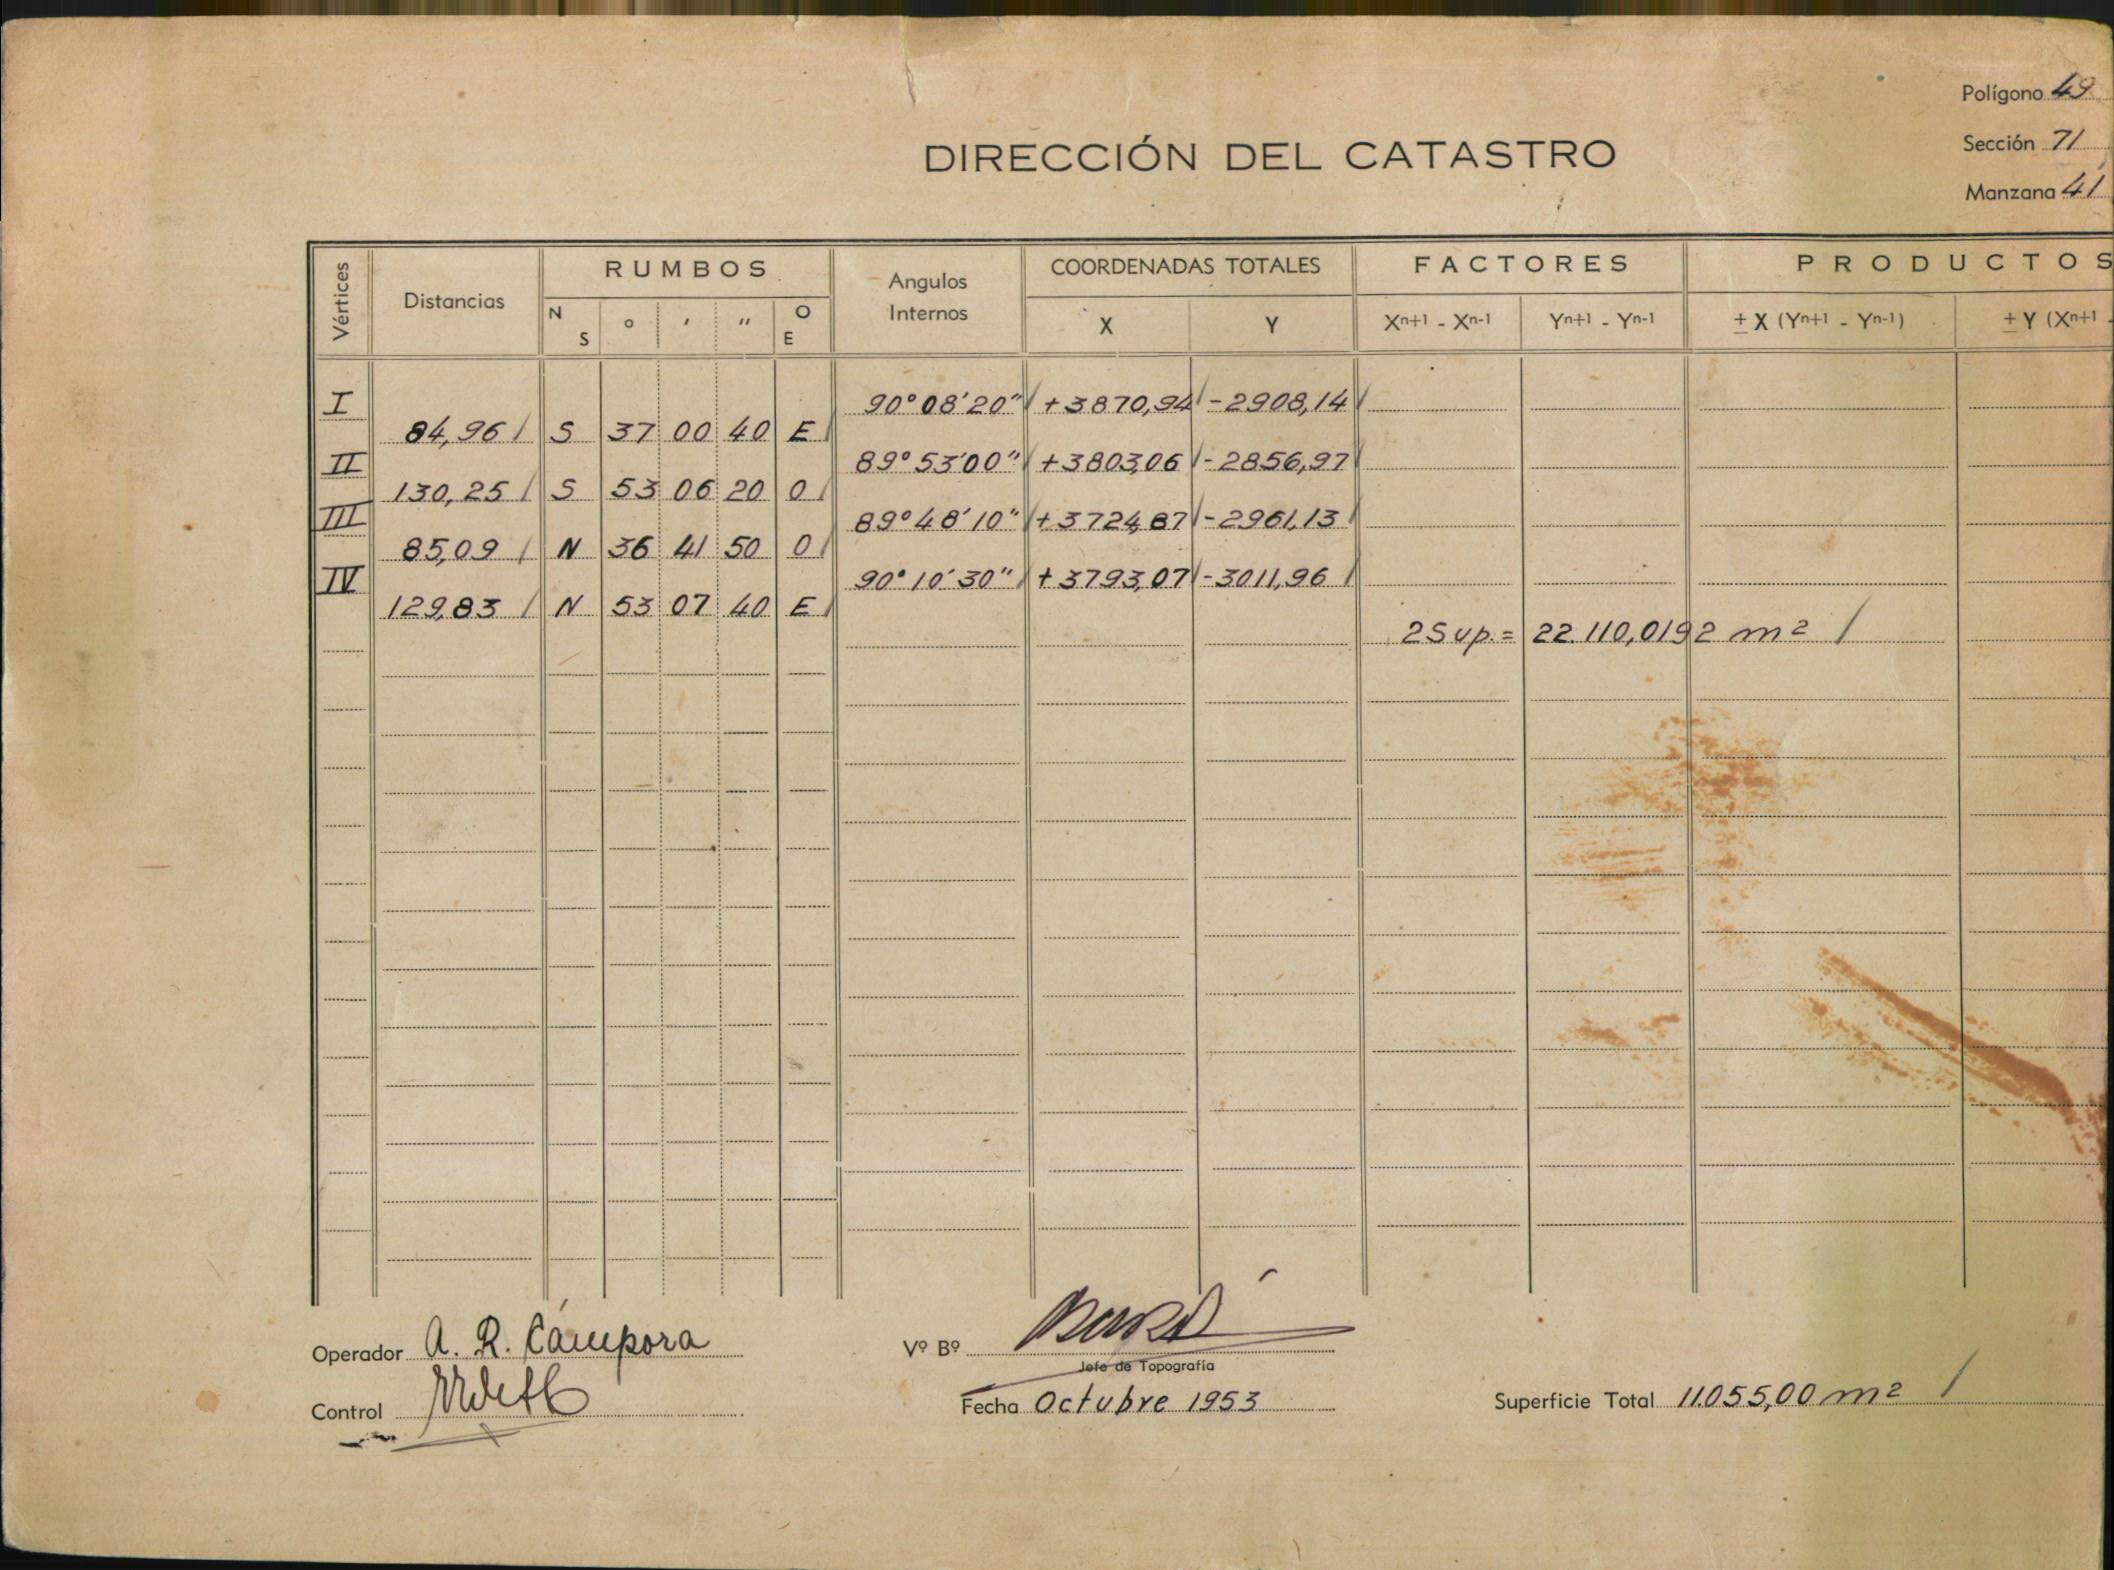 Polígono 49
DIRECCIÓN DEL CATASTRO
Sección 71
Manzana 41
Vértices Distancias RUMBOS Angulos Internos COORDENADAS TOTALES FACTORES PRODUCTOS
N S ° ' " O E X Y Xn+1 - Xn-1 Yn+1 - Yn-1 ± X (Yn+1 - Yn-1) ± Y (Xn+1 -
I 90°08'20" +3870,94 -2908,14
84,96 S 37 00 40 E
II 89°53'00" +3803,06 -2856,97
130,25 S 53 06 20 O
III 89°48'10" +3724,87 -2961,13
85,09 N 36 41 50 O
IV 90°10'30" +3793,07 -3011,96
129,83 N 53 07 40 E
2Sup.= 22.110,0192 m2
Operador A. R. Cámpora
Vº Bº
Jefe de Topografía
Control
Fecha Octubre 1953
Superficie Total 11.055,00 m2